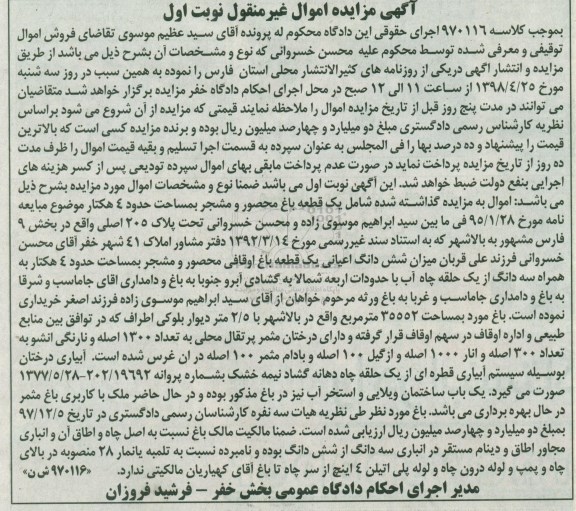 آگهی مزایده اموال غیرمنقول نوبت اول
بموجب کلاسه ۹۷۰۱۱۶ اجرای حقوقی این دادگاه محکوم له پرونده آقای سید عظیم موسوی تقاضای فروش اموال
توقیفی و معرفی شده توسط محکوم علیه محسن خسروانی که نوع و مشخصات آن بشرح ذیل می باشد از طریق
مزایده و انتشار آگهی دریکی از روزنامه های کثیرالانتشار محلی استان فارس را نموده به همین سبب در روز سه شنبه
مورخ ۱۳۹۸/۴/۲۵ از ساعت ۱۱ الی ۱۲ صبح در محل اجرای احکام دادگاه خفر مزایده برگزار خواهد شد متقاضیان
می توانند در مدت پنج روز قبل از تاریخ مزایده اموال را ملاحظه نمایند قیمتی که مزایده از آن شروع می شود براساس
نظریه کارشناس رسمی دادگستری مبلغ دو میلیارد و چهارصد میلیون ریال بوده و برنده مزایده کسی است که بالاترین
قیمت را پیشنهاد و ده درصد بها را فی المجلس به عنوان سپرده به قسمت اجرا تسلیم و بقیه قیمت اموال را ظرف مدت
ده روز از تاریخ مزایده پرداخت نماید در صورت عدم پرداخت مابقی بهای اموال سپرده تودیعی پس از کسر هزینه های
اجرایی بنفع دولت ضبط خواهد شد. این آگهن نوبت اول می باشد ضمنا نوع و مشخصات اموال مورد مزایده بشرح ذیل
می باشد: اموال به مزایده گذاشته شده شامل یک قطعه باغ محصور و مشجر بمساحت حدود ۴ هکتار موضوع مبایعه
نامه مورخ ۹۵/۱/۲۸ فی ما بین سید ابراهیم موسوی زاده و محسن خسروانی تحت پلاک ۲۰۵ اصلی واقع در بخش ۹
فارس مشهور به بالاشهر که به استناد سند غیررسمی مورخ ۱۳۹۲/۳/۱۴ دفتر مشاور املاک ۴۱ شهر خفر آقای محسن
خسروانی فرزند علی قربان میزان شش دانگ اعیانی یک قطعه باغ اوقافی محصور و مشجر بمساحت حدود ۴ هکتار به
همراه سه دانگ از یک حلقه چاه آب با حدودات اربعه شمالا به گشادی آبرو جنوبا به باغ و دامداری اقای جاماسب و شرقا
به باغ و دامداری جاماسب و غربا به باغ ورثه مرحوم خواهان از آقای سید ابراهیم موسوی زاده فرزند اصغر خریداری
نموده است. باغ مورد بمساحت ۳۵۵۵۲ مترمربع واقع در بالاشهر با ۲/۵ متر دیوار بلوکی اطراف که در توافق بین منابع
طبیعی و اداره اوقاف در سهم اوقاف قرار گرفته و دارای درختان مثمر پرتقال محلی به تعداد ۱۳۰۰ اصله و نارنگی انشو به
تعداد ۳۰۰ اصله و انار ۱۰۰۰ اصله و ازگیل ۱۰۰ اصله و بادام مثمر ۱۰۰ اصله در ان غرس شده است. آبیاری درختان
بوسیله سیستم آبیاری قطره ای از یک حلقه چاه دهانه گشاد نیمه خشک بشماره پروانه ۲۰۲/۱۹۶۹۲-۱۳۷۷/۵/۲۸
صورت می گیرد. یک باب ساختمان ویلایی و استخر آب نیز در باغ مذکور بوده و در حال حاضر ملک با کاربری باغ مثمر
در حال بهره برداری می باشد. باغ مورد نظر طی نظریه هیات سه نفره کارشناسان رسمی دادگستری در تاریخ ۹۷/۱۲/۵
بمبلغ دو میلیارد و چهارصد میلیون ریال ارزیابی شده است. ضمنا مالکیت مالک باغ نسبت به اصل چاه و اطاق آن و انباری
مجاور اطاق و دینام مستقر در انباری سه دانگ از شش دانگ بوده و نامبرده نسبت به تلمبه یانمار ۲۸ منصوبه در بالای
چاه و پمپ و لوله درون چاه و لوله پلی اتیلن ۴ اینچ از سر چاه تا باغ آقای کهیاریان مالکیتی ندارد. «۹۷۰۱۱۶ ش ن»
مدیر اجرای احکام دادگاه عمومی بخش خفر - فرشید فروزان